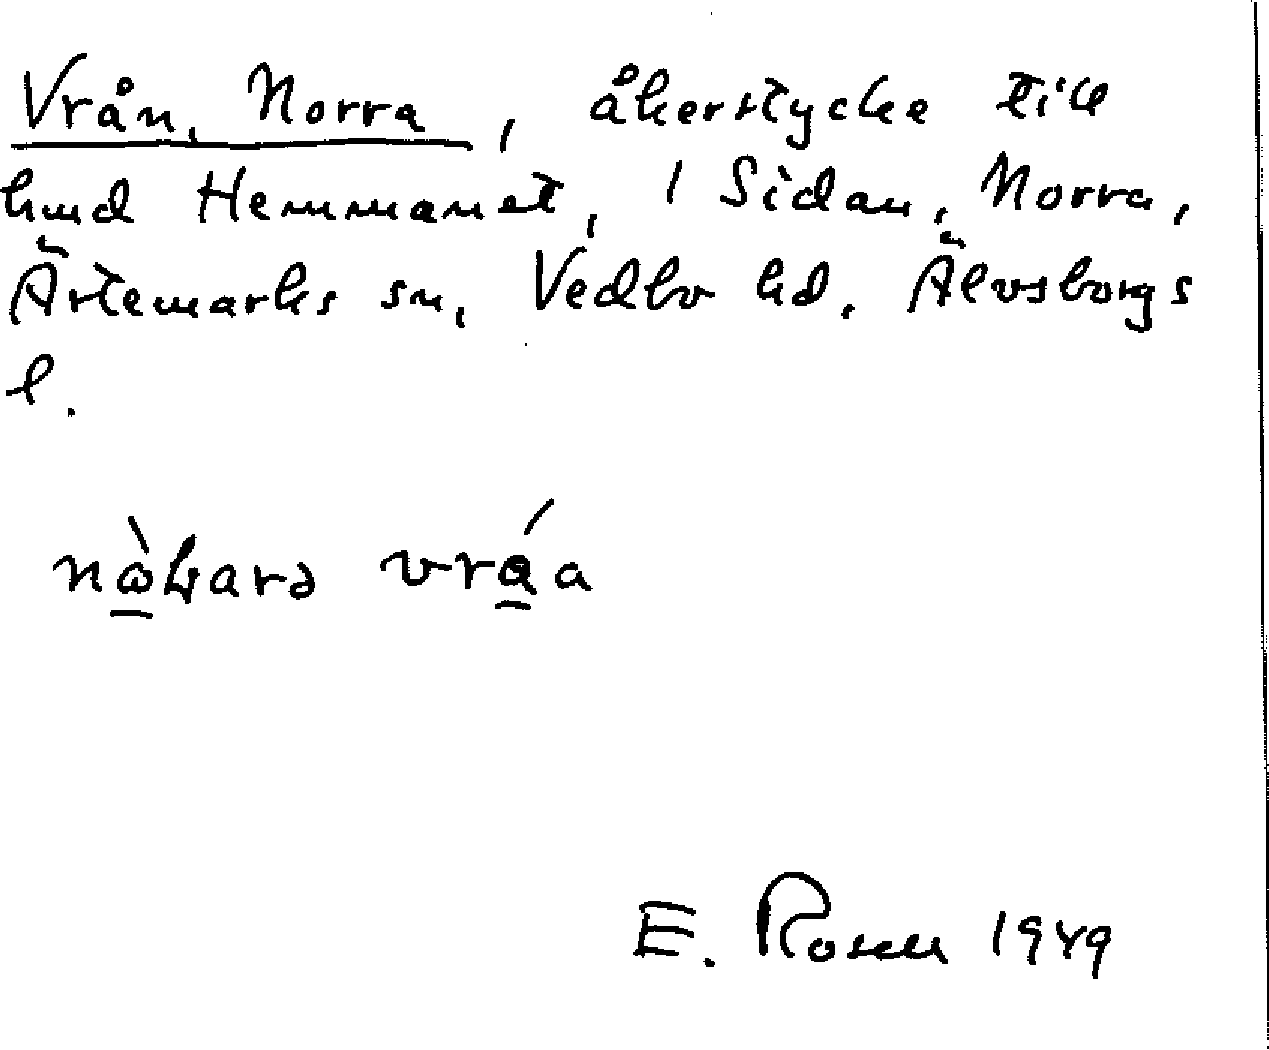 Vrån, Norra, åkerstycke till
hmd Hemmanet, 1 Sidan, Norra,
Ärtemarks sn, Vedbo hd. Älvsborgs
l.
vrá̱a
E. Rosen 1949